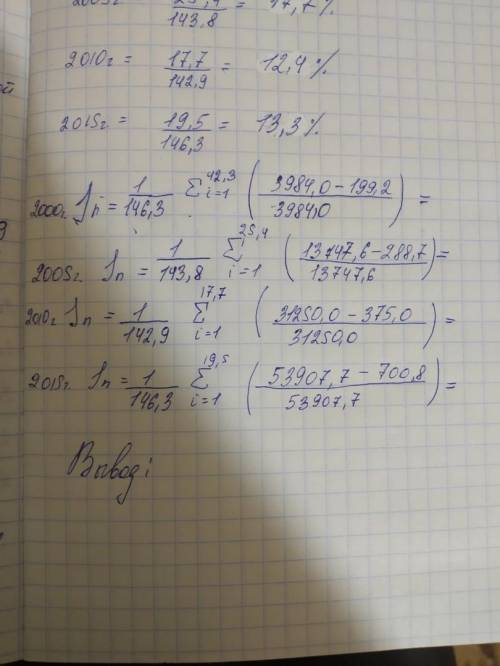 2005г = 25,4/143,8 = 17,7%
2010г = 17,7/142,9 = 12,4%
2015г = 19,5/146,3 = 13,3%
2000г. Jn = 1/146,3 Σ i=1 42,3 (3984,0 - 199,2 / 3984,0) =
2005г. Jn = 1/143,8 Σ i=1 25,4 (13747,6 - 288,7 / 13747,6) =
2010г Jn = 1/142,9 Σ i=1 17,7 (31250,0 - 375,0 / 31250,0) =
2015г. Jn = 1/146,3 Σ i=1 19,5 (53907,7 - 700,8 / 53907,7) =
Вывод: